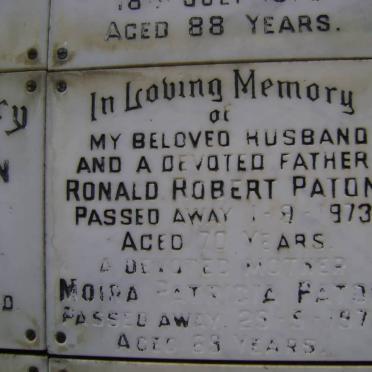 JULY
AGED 88 YEARS.
In Loving Memory
of
MY BELOVED HUSBAND
AND A DEVOTED FATHER
RONALD ROBERT PATON
PASSED AWAY 1-9-1973
AGED 70 YEARS
A DEVOTED MOTHER
MOIRA PATRICIA PATON
PASSED AWAY
AGED YEARS